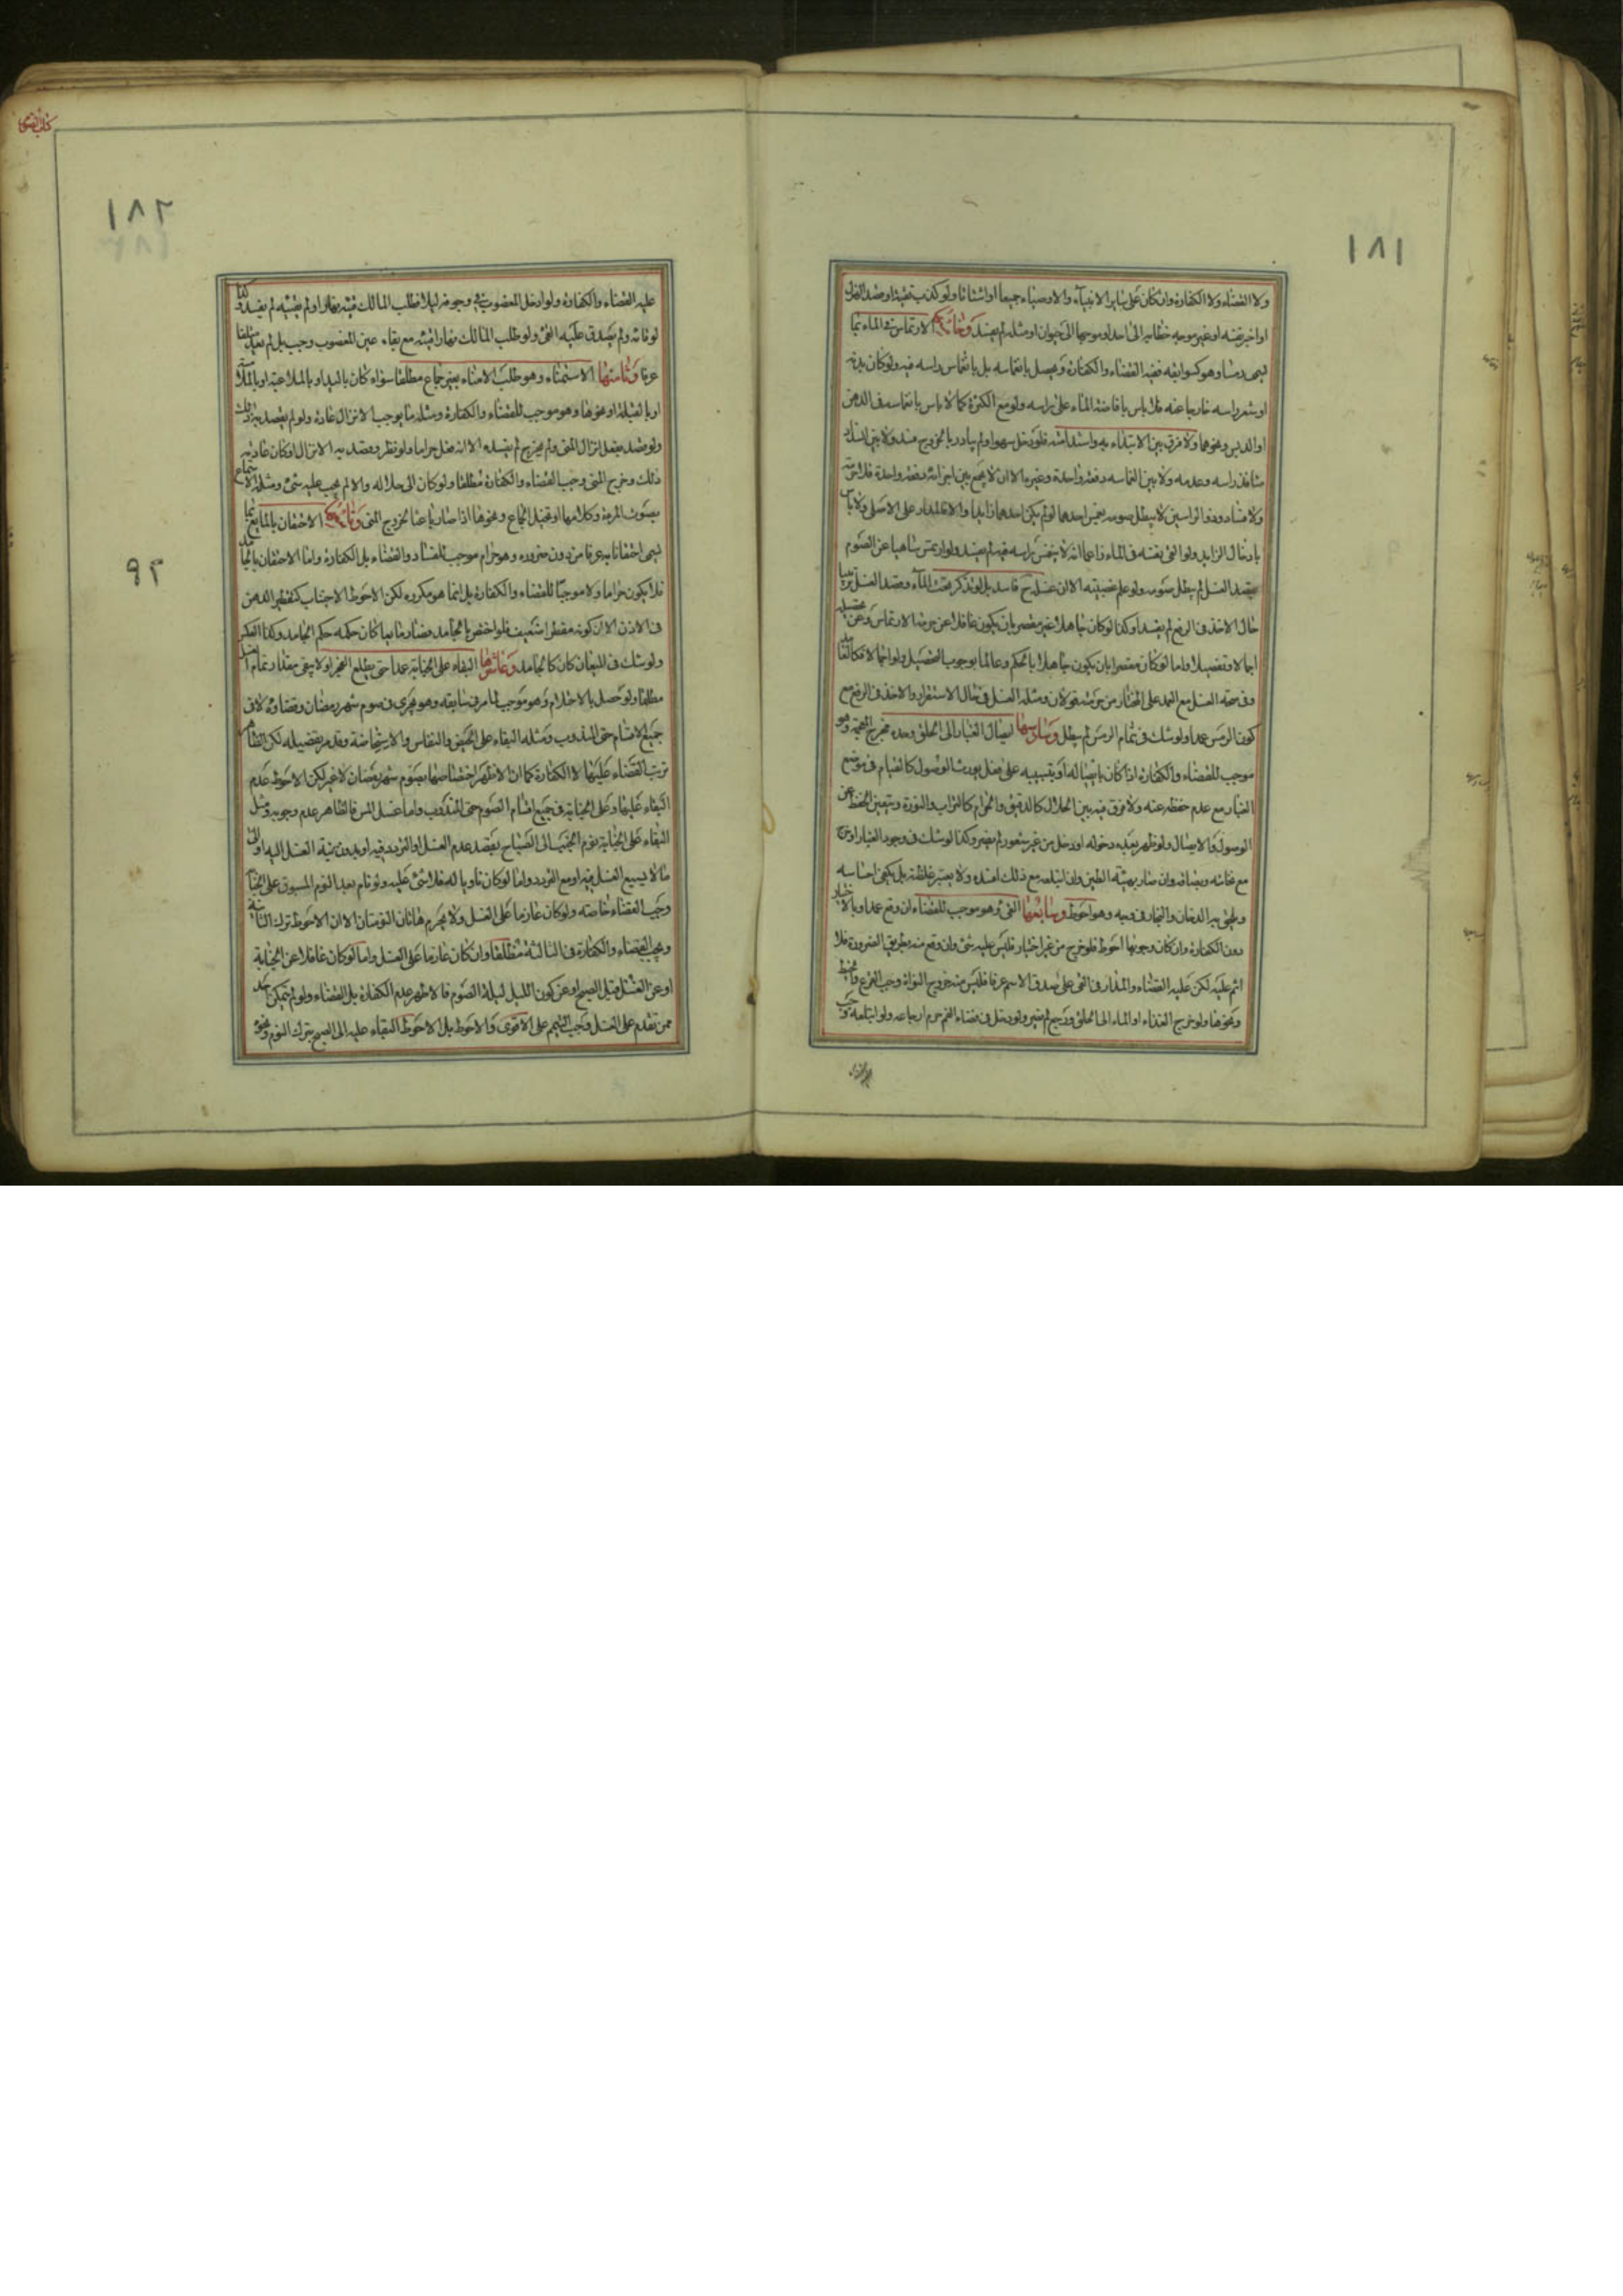 ١٨١
ولا القضاء ولا الكفارة وان كان على ساير الانبياء والاوصياء جميعا او
او اخبر بنفسه او غير موجه خطابه الى احد او موجها الى حيوان او مثله لم يفسد وخامسها الارتماس في الماء بما
يسمى رمسا وهو كسوابقه فيه القضاء والكفارة ويحصل بانغماسه بل بانغماس راسه فيه ولو كان بدنه
او شعر راسه خارجا عنه فلا باس بافاضة الماء على راسه ولو مع الكثرة كما لا باس بانغماسه في الدهن
او الدبس ونحوهما ولا فرق بين الابتداء به واستدامته فلو دخل سهوا ولم يبادر بالخروج فسد ولا بين انسداد
منافذ راسه وعدمه ولا بين انغماسه دفعة واحدة وغيرها الا ان لا يجمع بين اجزائه دفعة واحدة فلا
ولا فساد وذو الراسين لا يبطل صومه بغمس احدهما لو لم يكن احدهما زايدا والا فالمدار على الاصلي ولا باس
بادخال الزايد ولو القى نفسه في الماء زاعما انه لا ينغمس راسه فيه لم يفسد ولو ارتمس ناسيا عن الصوم
بقصد الغسل لم يبطل صومه ولو علم غصبيته الا ان غسله ح فاسد بل لو تذكر تحت الماء وقصد الغسل
حال الاخذ في الرفع لم يفسد وكذا لو كان جاهلا غير مقصر بان يكون غافلا عن حرمة الارتماس وعن
اجمالا وتفصيلا واما لو كان مقصرا بان يكون جاهلا بالحكم وعالما بوجوب التحصيل ولو اجمالا فكالعامد
وفي صحة الغسل مع العمد على المختار من حرمته قولان ومثله الغسل في حال الاستقرار والاخذ في الرفع مع
كون الرمس عمدا ولو شك في تمام الرمس لم يبطل وسادسها ايصال الغبار الى الحلق وحده مخرج المعجمة وهو
موجب للقضاء والكفارة اذا كان بايصاله او بتسبيبه على فعل يورث الوصول كالقيام في موضع
الغبار مع عدم حفظه عنه ولا فرق فيه بين الحلال كالدقيق والحرام كالتراب والنورة ويتعين التحفظ عن
الوصول والايصال ولو ظهر بعد دخوله او دخل من غير شعور لم يضر وكذا لو شك في وجود الغبار او خرج
مع نخامته وبصاقه وان صار بهيئة الطين وان ابتلعه مع ذلك افسده ولا يعتبر غلظته بل يكفي احساسه
ويلحق به الدخان والبخار في وجه وهو احوط وسابعها القيء وهو موجب للقضاء ان وقع عمدا وبالاختيار
دون الكفارة وان كان وجوبها احوط فلو خرج من غير اختيار فليس عليه شيء وان وقع منه بطريق الضرورة فلا
اثم عليه لكن عليه القضاء والمدار في القيء على صدق الاسم عرفا فليس منه خروج النواة وحب القرع
ونحوها ولو خرج الغذاء او الماء الى الحلق ورجع لم يضر ولو دخل في فضاء الفم حرم ارجاعه ولو ابتلعه وجب
كتاب الصوم
١٨٢
٩٢
عليه القضاء والكفارة ولو ادخل المغصوب في جوفه ليلا فطلب المالك قيئه نهارا ولم يقيئه لم يفسد وكذا
لو قائه ولم يصدق عليه القيء ولو طلب المالك نهارا قيئه مع بقاء عين المغصوب وجب بل لم يعد
عرفا وثامنها الاستمناء وهو طلب الامناء بغير جماع مطلقا سواء كان باليد او بالملاعبة او بالملامسة
او بالقبلة او نحوها وهو موجب للقضاء والكفارة ومثله ما يوجب الانزال عادة ولو لم يقصد به ذلك
ولو قصد بفعل انزال المني ولم يخرج لم يفسده الا انه فعل حراما ولو نظر وقصد به الانزال او كان عادته
ذلك وخرج المني وجب القضاء والكفارة مطلقا ولو كان الى حلاله والا لم يجب عليه شيء ومثله الاستماع
بصوت المرءة وكلامها او تخيل الجماع ونحوها اذا صار باعثا لخروج المني وتاسعها الاحتقان بالمايع بما
يسمى احتقانا به عرفا من دون ضرورة وهو حرام موجب للفساد والقضاء بل الكفارة واما الاحتقان بالجامد
فلا يكون حراما ولا موجبا للقضاء والكفارة بل انما هو مكروه لكن الاحوط الاجتناب كتقطير الدهن
في الاذن الا ان كونه مفطرا ضعيف فلو احتقن بالجامد فصار مايعا كان حكمه حكم الجامد وكذا العكس
ولو شك في الميعان كان كالجامد وعاشرها البقاء على الجنابة عمدا حتى يطلع الفجر او لا يبقى مقدار تمام الغسل
مطلقا ولو حصل بالاحتلام وهو موجب لما مر في سابقه وهو يجري في صوم شهر رمضان وقضاؤه لا في
جميع الاقسام حتى المندوب ومثله البقاء على الحيض والنفاس والاستحاضة وقد مر تفصيله لكن الظاهر
ترتب القضاء عليها لا الكفارة كما ان الاظهر اختصاصها بصوم شهر رمضان لا غير لكن الاحوط عدم
البقاء عليها وعلى الجنابة في جميع اقسام الصوم حتى المندوب واما غسل المس فالظاهر عدم وجوبه ومثل
البقاء على الجنابة نوم الجنب الى الصباح بقصد عدم الغسل او التردد فيه او بدون نية الغسل اليه او الى
ما لا يسع الغسل فيه او مع التردد واما لو كان ناويا له فلا شيء عليه ولو نام بعد النوم المسبوق على الجنابة
وجب القضاء خاصة ولو كان عازما على الغسل ولا يحرم هاتان النومتان الا ان الاحوط ترك الثانية
ويجب القضاء والكفارة في الثالثة مطلقا وان كان عازما على الغسل واما لو كان غافلا عن الجنابة
او عن الغسل قبل الصبح او عن كون الليل ليلة الصوم فالاظهر عدم الكفارة بل القضاء ولو لم يتمكن احد
ممن تقدم على الغسل وجب التيمم على الاقوى والاحوط بل الاحوط البقاء عليه الى الصبح بترك النوم ونحوه